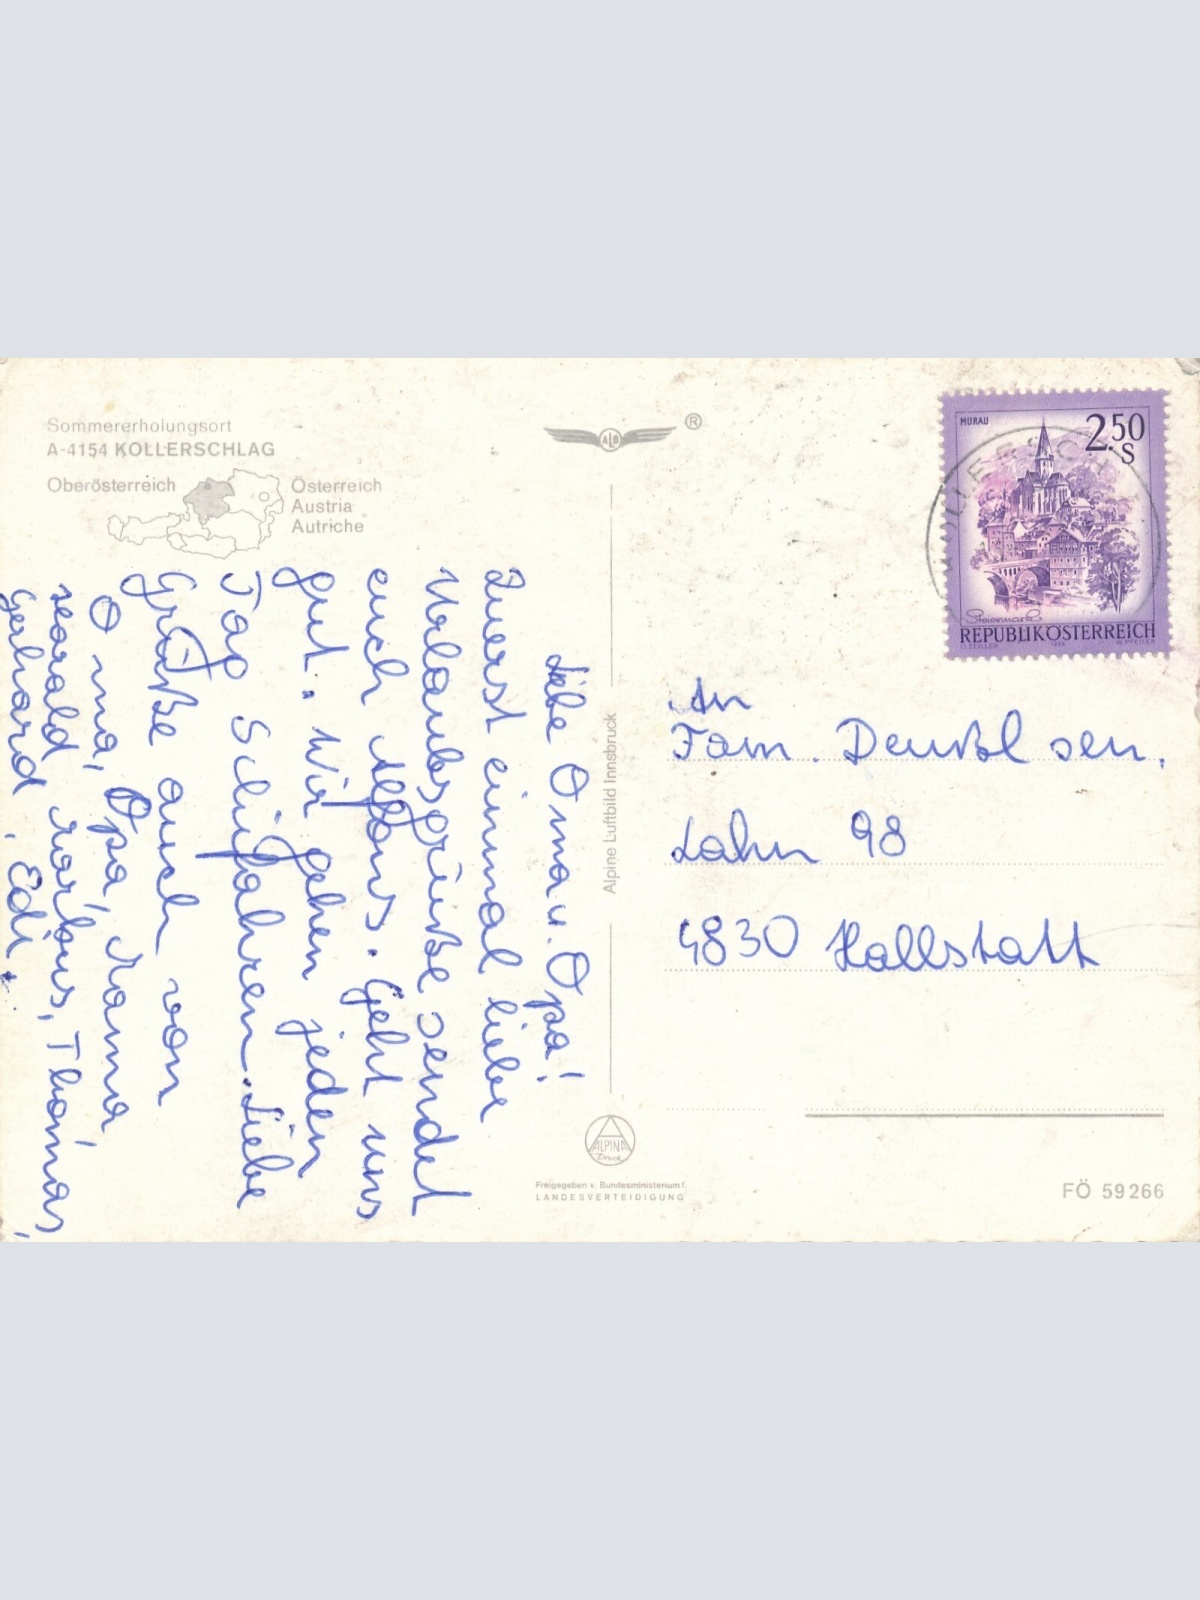 Sommererholungsort
A-4154 KOLLERSCHLAG
Oberösterreich
Österreich
Austria
Autriche
ALB
®
MURAU
2.50
S
Steiermark
REPUBLIK ÖSTERREICH
Liebe Oma u. Opa!
Zuerst einmal liebe
Urlaubsgrüße sendet
euch Alfons. Geht uns
gut. Wir gehen jeden
Tag Schifahren. Liebe
Grüße auch von
Oma, Opa, Mama
Harald, Markus, Thomas,
Gerhard, Edi.
Alpine Luftbild Innsbruck
An
Fam. sen.
Lahn 98
4830 Hallstatt
ALPINA
Druck
Freigegeben v. Bundesministerium f.
LANDESVERTEIDIGUNG
FÖ 59266